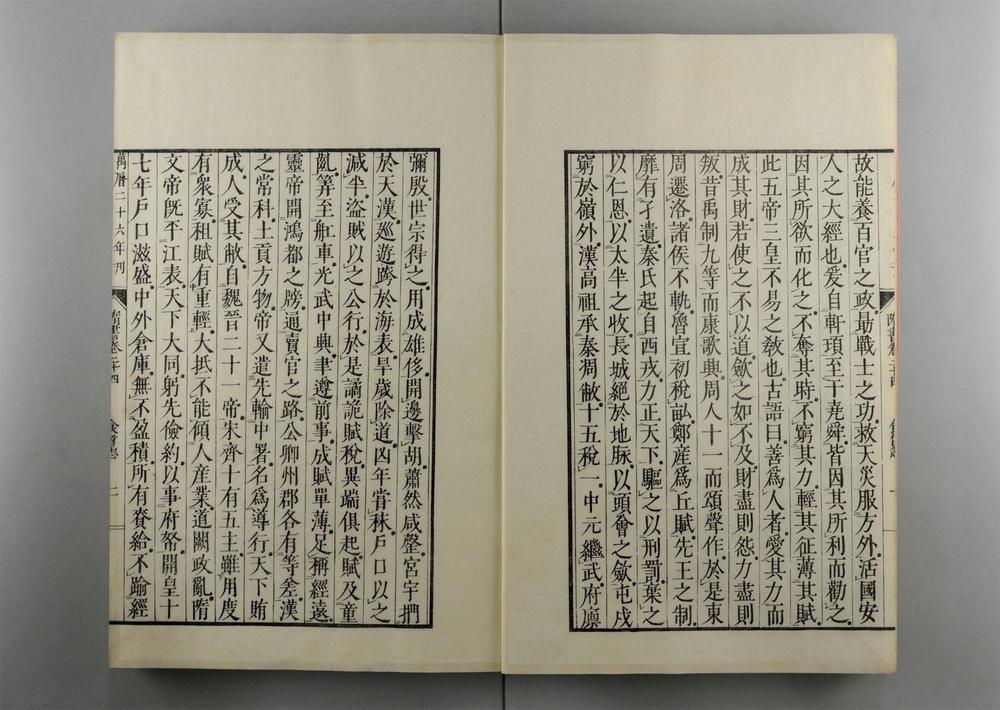 故能養百官之政勗戰士之功救天災服方外活國安
人之大經也爰自軒頊至于堯舜皆因其所利而勸之
因其所欲而化之不奪其時不窮其力輕其征薄其賦
此五帝三皇不易之敎也古語曰善爲人者愛其力而
成其財若使之不以道斂之如不及財盡則怨力盡則
叛昔禹制九等而康歌興周人十一而頌聲作於是東
周遷洛諸侯不軌魯宣初稅畝鄭産爲丘賦先王之制
靡有孑遺秦氏起自西戎力正天下驅之以刑罰棄之
以仁恩以太半之收長城絕於地脉以頭會之斂屯戍
窮於嶺外漢高祖承秦凋敝十五稅一中元繼武府廪
彌殷世宗得之用成雄侈開邊擊胡蕭然咸罄宮宇捫
於天漢巡遊跨於海表旱歲除道凶年嘗秣戶口以之
減半盜賊以之公行於是譎詭賦稅異端俱起賦及童
齓筭至舡車光武中興聿遵前事成賦單薄足稱經遠
靈帝開鴻都之牓通賣官之路公卿州郡各有等差漢
之常科土貢方物帝又遣先輸中署名爲導行天下賄
成人受其敝自魏晉二十一帝宋齊十有五主雖用度
有衆寡租賦有重輕大抵不能傾人産業道闕政亂隋
文帝旣平江表天下大同躬先儉約以事府帑開皇十
七年戶口滋盛中外倉庫無不盈積所有賚給不踰經
萬曆二十六年刊
隋書卷二十四
食貨志
二